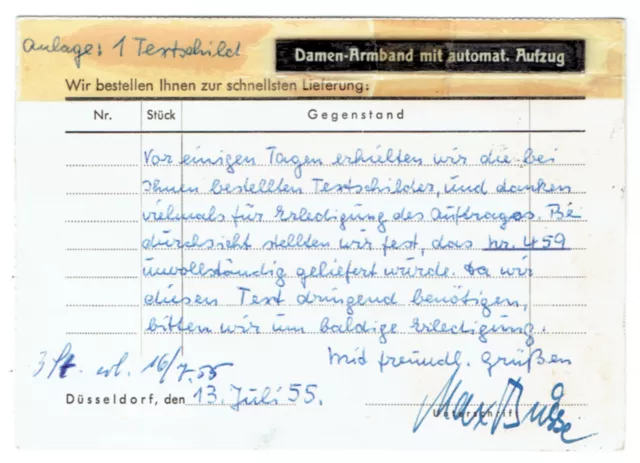 Anlage: 1 Textschild
Damen-Armband mit automat. Aufzug
Wir bestellen Ihnen zur schnellsten Lieferung:
Nr. Stück Gegenstand
Vor einigen Tagen erhielten wir die bei
Ihnen bestellten Textschilder, und danken
vielmals für Erledigung des Auftrages. Bei
durchsicht stellten wir fest, das nr. 459
unvollständig geliefert wurde. Da wir
diesen Text dringend benötigen,
bitten wir um baldige Erledigung.
Mit freundl. Grüßen
3 St. erl. 16/7.55
Düsseldorf, den 13. Juli 55.
Unterschrift
Max Busse